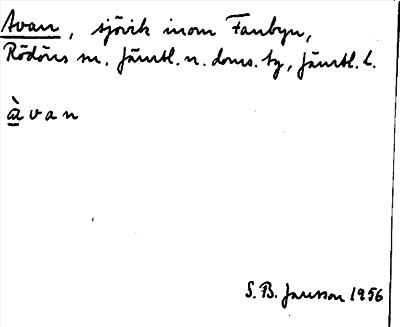 Avan, sjövik inom Fanbyn,
Rödöns sn, Jämtl. n. doms. tg, Jämtl. l.
àvan
S. B. Jansson 1956